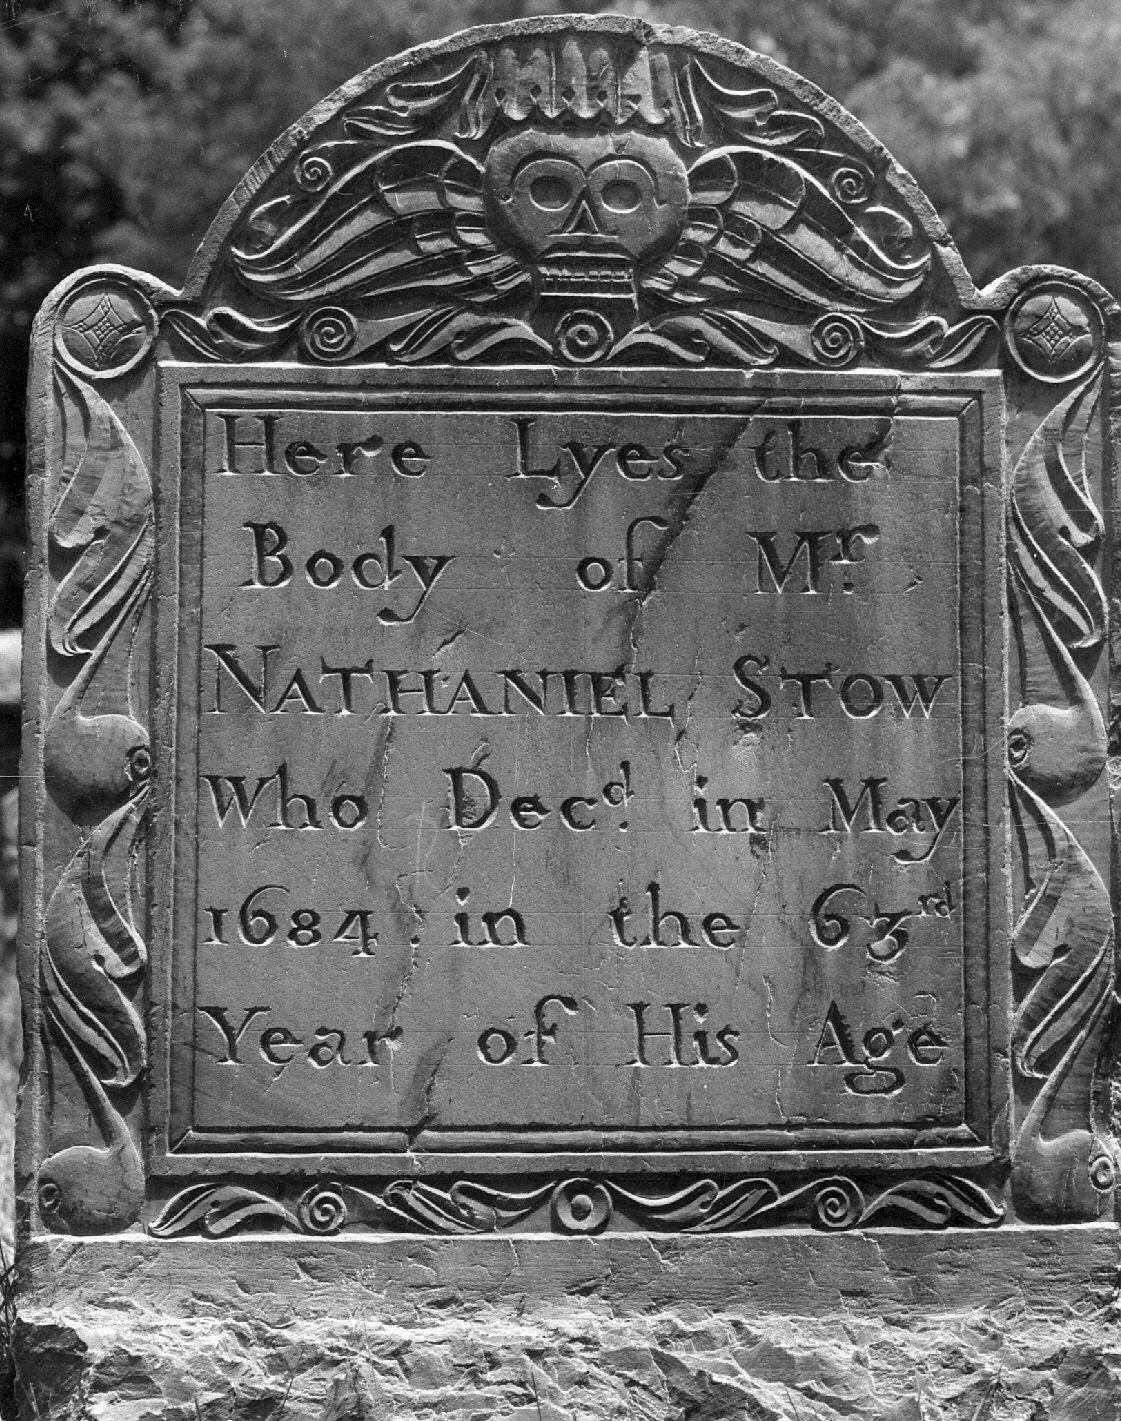 Here Lyes the
Body of Mr.
NATHANIEL STOW
Who Decd. in May
1684 in the 63rd
Year of His Age